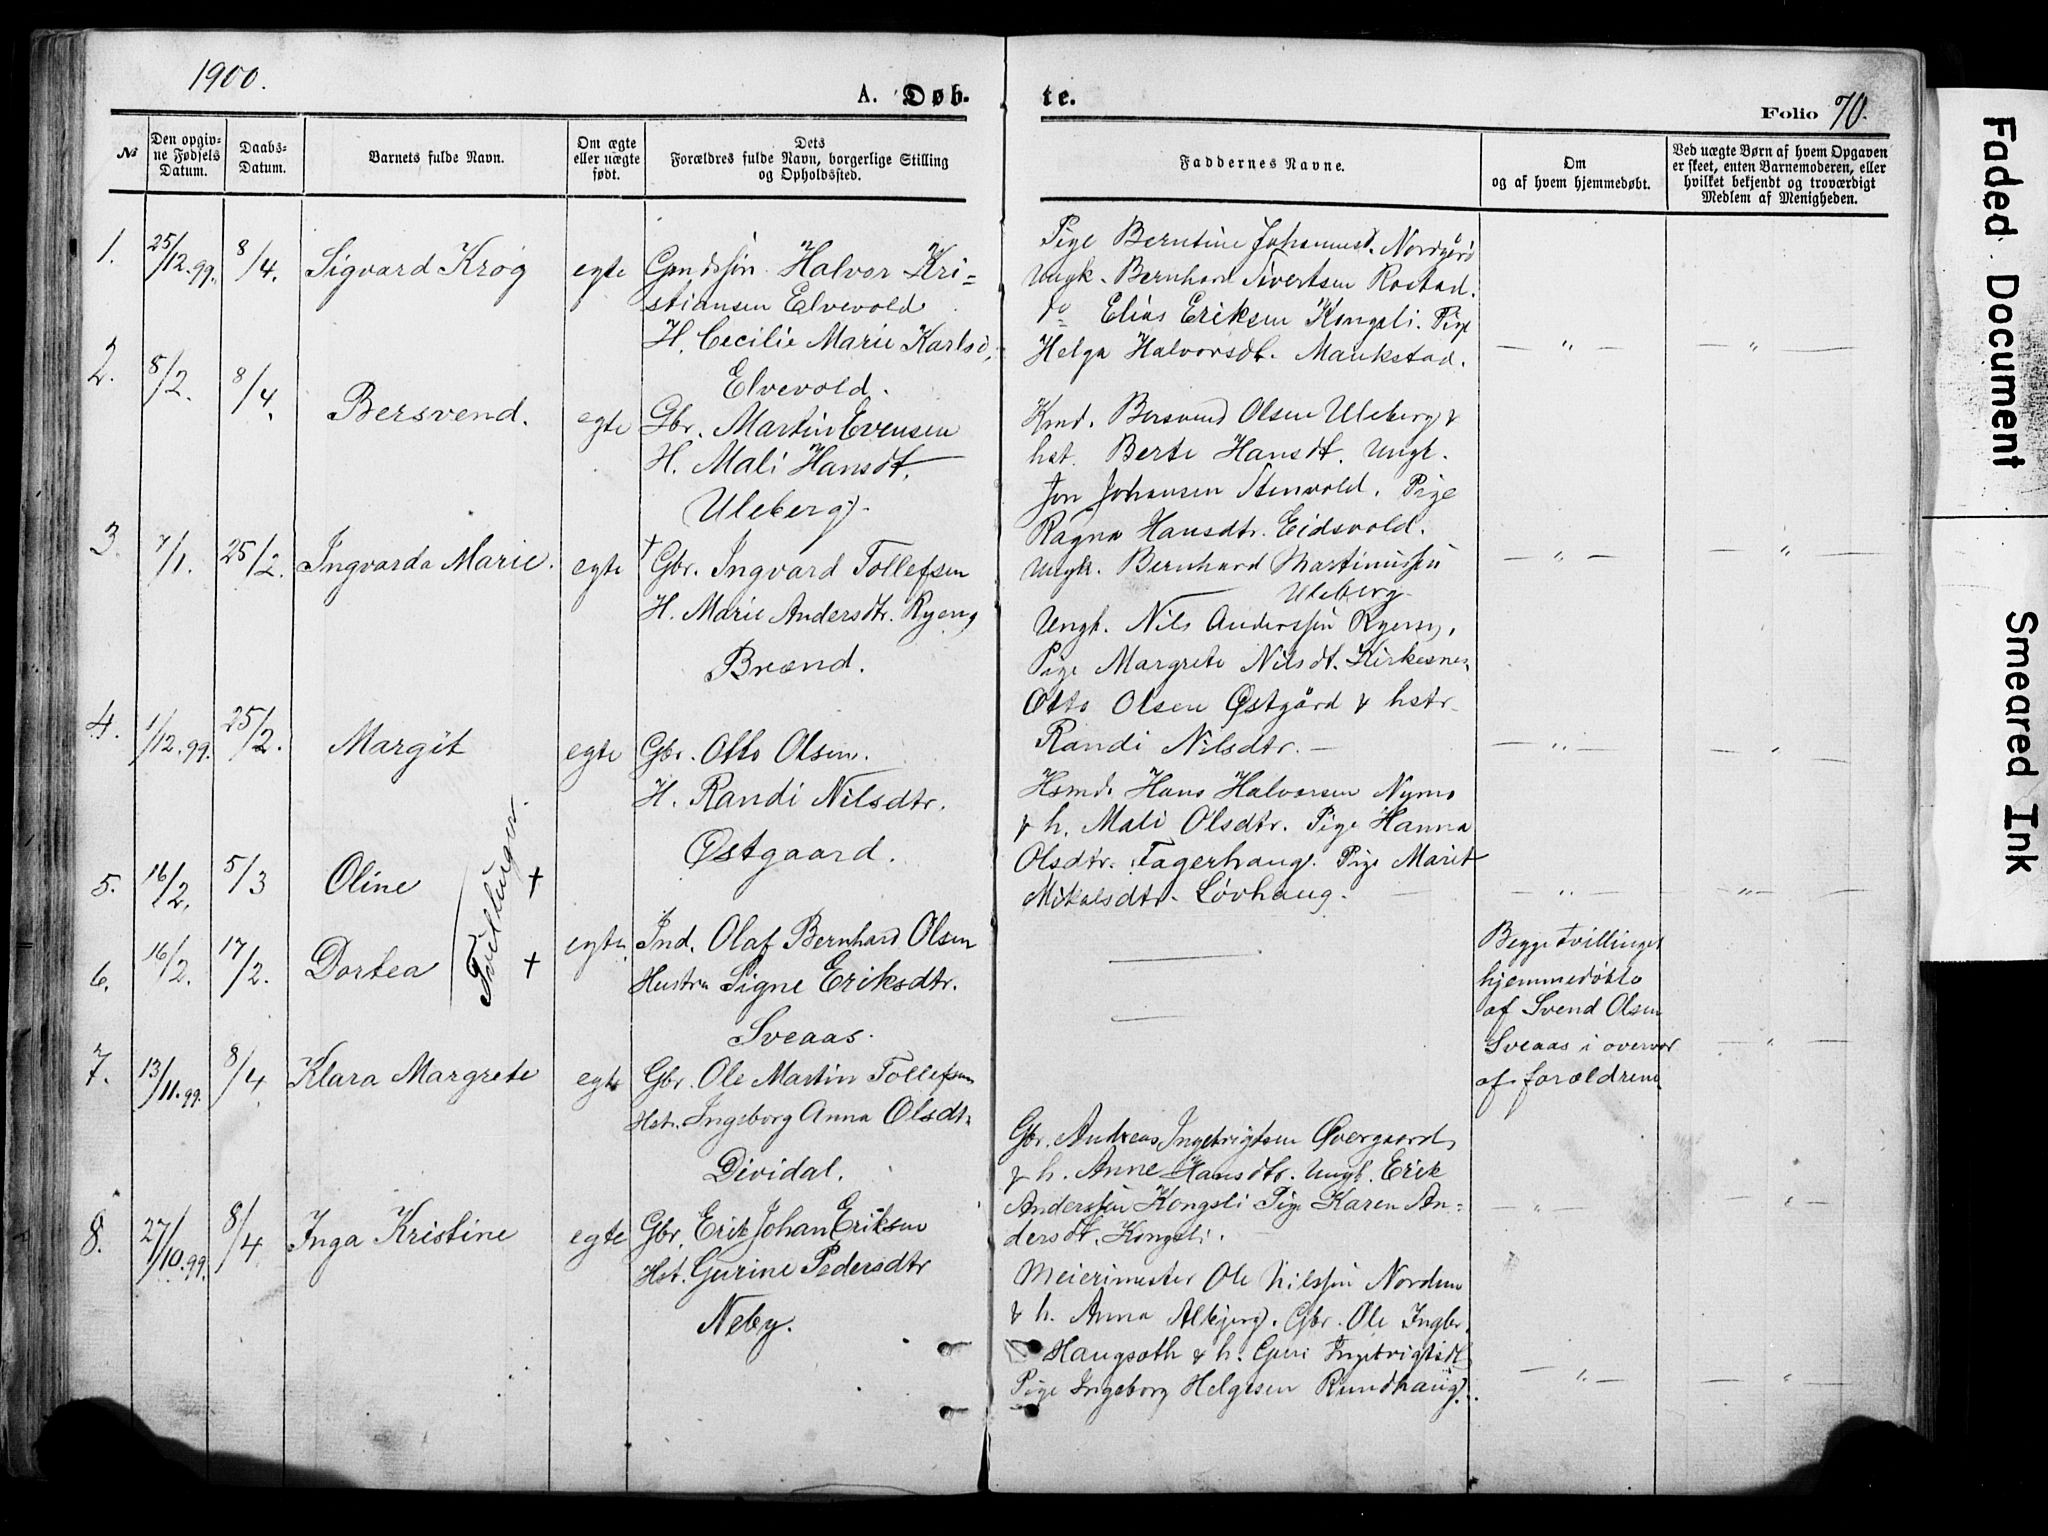 1900.
A. Døb-
te.
Folio 70.
No
Den opgiv-
ne Fødsels
Datum.
Daabs-
Datum.
Barnets fulde Navn.
Om ægte
eller uægte
født.
Dets
Forældres fulde Navn, borgerlige Stilling
og Opholdssted.
Faddernes Navne.
Om
og af hvem hjemmedøbt.
Ved uægte Børn af hvem Opgaven
er skeet, enten Barnemoderen, eller
hvilket bekjendt og troværdigt
Medlem af Menigheden.
1.
25/12.99.
8/4.
Sigvard Krog
egte
Halvor Kri-
stiansen Elvevold
H. Cecilie Marie Karlsd.
Elvevold.
Pige Berntine Johannesd. Nordgård
Ungk. Bernhard Sivertsen Rostad.
do Elias Eriksen Kongsli. Pige
Helga Halvorsdt. Maukstad.
— " —
— " —
2.
8/2.
8/4.
Bersvend.
egte
Gbr. Martin Evensen
H. Mali Hansdt.
Uleberg.
Kmd. Bersvend Olsen Uleberg &
hst. Berte Hansdt. Ungk.
Jon Johansen Stenvold. Pige
Ragna Hansdtr. Eidsvold.
Ungk. Bernhard Martinussen
Uleberg.
— " —
— " —
3.
7/1.
25/2.
Ingvarda Marie.
egte
† Gbr. Ingvard Tollefsen
H. Marie Andersdtr. Ryeng
Brænd.
Ungk. Nils Anderssen Ryeng,
Pige Margrete Nilsdt. Kirkesnes
Otto Olsen Østgård & hstr.
Randi Nilsdtr. —
— " —
— " —
4.
1/12.99.
25/2.
Margit
egte
Gbr. Otto Olsen.
H. Randi Nilsdtr.
Østgaard.
Hsmd. Hans Halvorsen Nymo
& h. Mali Olsdtr. Pige Hanna
Olsdtr. Fagerhaug. Pige Marit
Mikalsdtr. Løvhaug.
— " —
— " —
5.
16/2.
5/3
Oline
†
Tvillinger.
6.
16/2.
17/2.
Dortea
†
egte
Ind. Olaf Bernhard Olsen
Hustru Signe Eriksdtr.
Sveaas.
Begge tvillinger
hjemmedøbte
af Svend Olsen
Sveaas i overvær
af forældrene
— " —
7.
13/11.99.
8/4
Klara Margrete
egte
Gbr. Ole Martin Tollefsen
Hstr. Ingeborg Anna Olsdt.
Dividal.
Gbr. Andreas Ingebrigtsen Øvergaard
& h. Anne Hansdtr. Ungk. Erik
Anderssen Kongsli Pige Karen An-
dersdt. Kongsli.
— " —
— " —
8.
27/10.99.
8/4
Inga Kristine
egte
Gbr. Erik Johan Eriksen
Hst. Gurine Pedersdtr
Neby.
Meierimester Ole Nilssen Nordmo
& h. Anna Albjerg. Gbr. Ole Ingbr.
Haugseth & h. Guri Ingebrigtsdt.
Pige Ingeborg Helgesen Rundhaug.
— " —
— " —
Faded Document
Smeared Ink